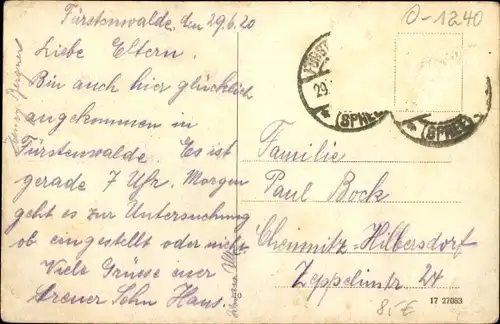 Fürstenwalde, den 29.6.20
Liebe Eltern.
Bin auch hier glücklich
angekommen in
Fürstenwalde. Es ist
gerade 7 Uhr. Morgen
geht es zur Untersuchung
ob eingestellt oder nicht
Viele Grüsse euer
treuer Sohn Hans.
O-1240
29.
(SPREE)
(SPREE)
Familie
Paul Bock
Chemnitz-Hilbersdorf
Zeppelinstr 24
8,-€
17 27083